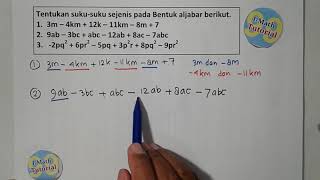 Tentukan suku-suku sejenis pada Bentuk aljabar berikut.
1. 3m – 4km + 12k – 11km – 8m + 7
2. 9ab – 3bc + abc – 12ab + 8ac – 7abc
3. -2pq² + 6pr² – 5pq + 3p²r + 8pq² – 9pr²
Math
Tutorial
① 3m – 4km + 12k – 11km – 8m + 7 3m dan –8m
–4km dan –11km
② 9ab – 3bc + abc – 12ab + 8ac – 7abc
Math
Tutorial